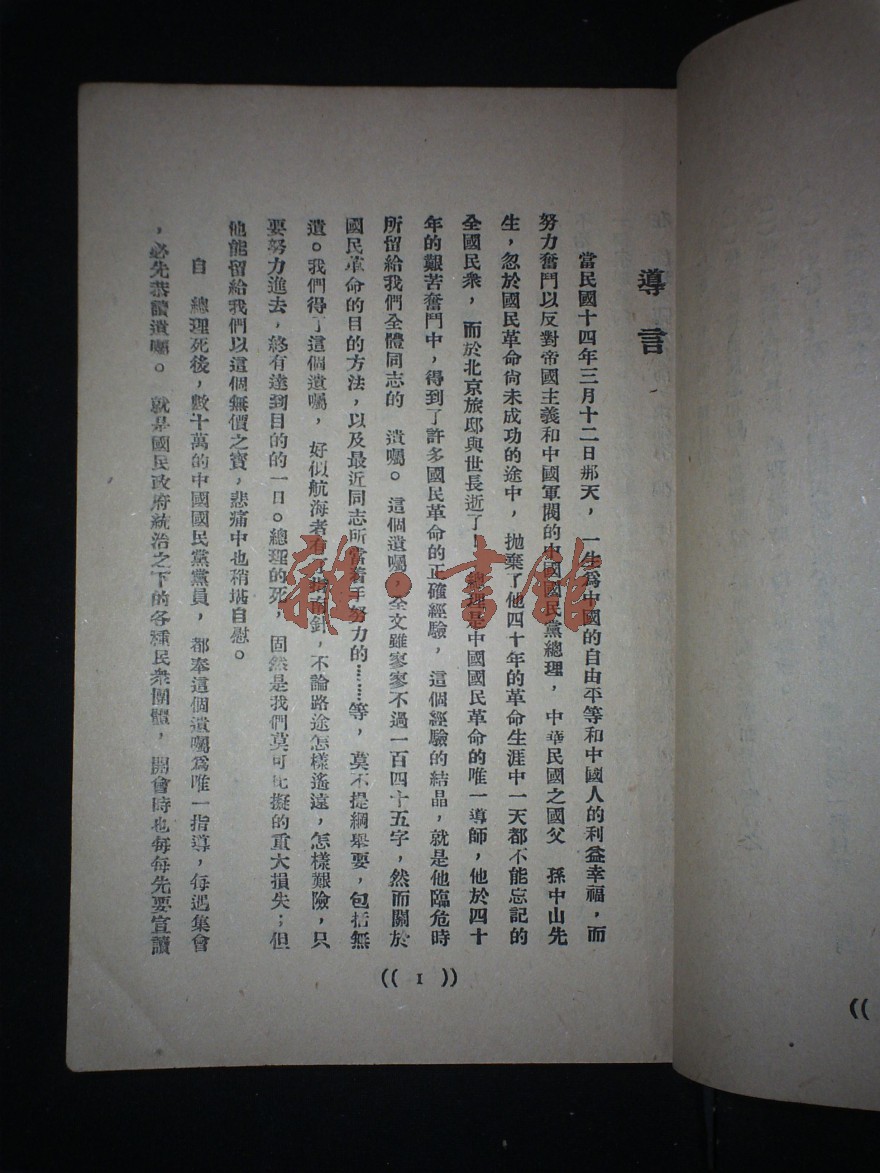 導言
當民國十四年三月十二日那天，一生為中國的自由平等和中國人的利益幸福，而
努力奮鬥以反對帝國主義和中國軍閥的中國國民黨總理，中華民國之國父　孫中山先
生，忽於國民革命尙未成功的途中，拋棄了他四十年的革命生涯中一天都不能忘記的
全國民衆，而於北京旅邸與世長逝了！　總理是中國國民革命的唯一導師，他於四十
年的艱苦奮鬥中，得到了許多國民革命的正確經驗，這個經驗的結晶，就是他臨危時
所留給我們全體同志的　遺囑。這個遺囑，全文雖寥寥不過一百四十五字，然而關於
國民革命的目的方法，以及最近同志所當着手努力的……等，莫不提綱舉要，包括無
遺。我們得了這個遺囑，好似航海者有了指南針，不論路途怎樣遙遠，怎樣艱險，只
要努力進去，終有達到目的的一日。總理的死，固然是我們莫可比擬的重大損失；但
他能留給我們以這個無價之寶，悲痛中也稍堪自慰。
自　總理死後，數十萬的中國國民黨黨員，都奉這個遺囑爲唯一指導，每遇集會
，必先恭讀遺囑。就是國民政府統治之下的各種民衆團體，開會時也每每先要宣讀
(( 1 ))
((
雜·書館